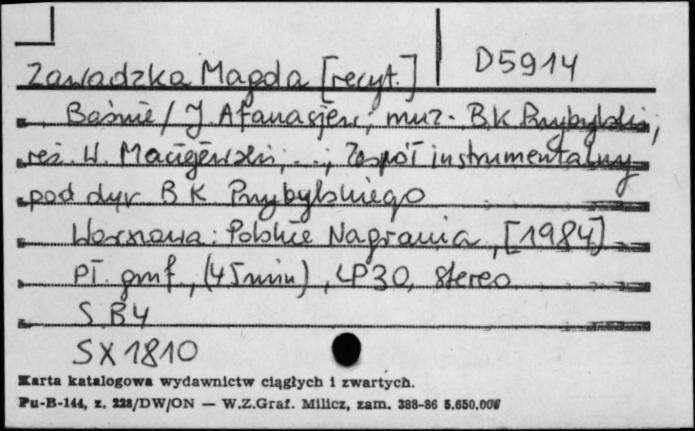 Zawadzka Magda [recyt.]
D5914
Baśnie / J. Afanasjew; muz. B.K. Przybylski;
reż. W. Maciejewski, ..., Zespół instrumentalny
pod dyr B K Przybylskiego
Warszawa: Polskie Nagrania, [1984]
Pł. gmf., (45 min), LP30, stereo
S.B4
SX1810
Karta katalogowa wydawnictw ciągłych i zwartych.
Pu-B-144, z. 228/DW/ON — W.Z.Graf. Milicz, zam. 388-86 5.650.000